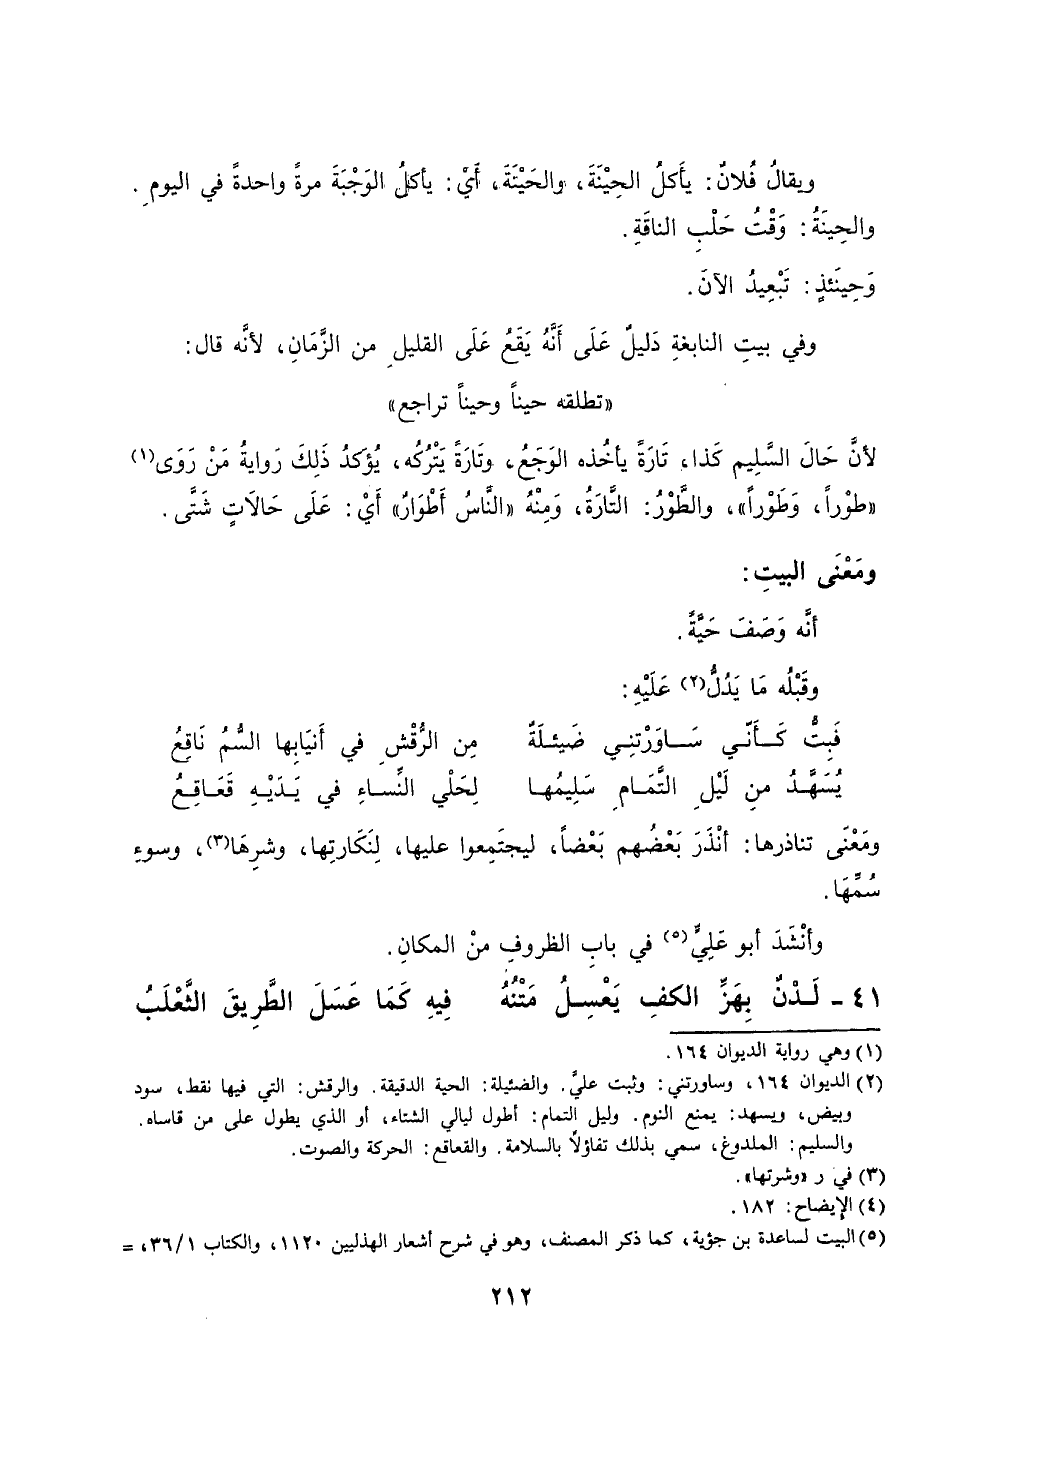 ويقالُ فُلانٌ: يأَكلُ الحِيْنَةَ، والحَيْنَةَ، أَيْ: يأكلُ الوَجْبَةَ مرةً واحدةً في اليومِ.
والحِينَةُ: وَقْتُ حَلْبِ الناقَةِ.
وَحِينَئذٍ: تَبْعِيدُ الآنَ.
وفي بيتِ النابغةِ دَليلٌ عَلَى أَنَّهُ يَقَعُ عَلَى القليلِ من الزَّمَانِ، لأنَّه قال:
«تطلقه حيناً وحيناً تراجع»
لأنَّ حَالَ السَّلِيم كَذا، تَارَةً يأخُذه الوَجَعُ، وتَارَةً يَتْرُكُه، يُؤكدُ ذَلِكَ رَوايةُ مَنْ رَوَى(١)
«طوْراً، وَطَوْراً»، والطَّوْرُ: التَّارَةُ، وَمِنْهُ «النَّاسُ أَطْوَارٌ» أَيْ: عَلَى حَالَاتٍ شَتَّى.
ومَعْنَى البيتِ:
أنَّه وَصَفَ حَيَّةً.
وقَبْلُه مَا يَدُلُّ(٢) عَلَيْهِ:
فَبِتُّ كَأَنّي سَاوَرْتنِي ضَئِيلَةٌ مِن الرُّقْشِ في أَنيَابِها السُّمُ نَاقِعُ
يُسَهَّدُ من لَيْلِ التَّمَامِ سَلِيمُها لِحَلْي النِّسَاءِ في يَدَيْهِ قَعَاقِعُ
ومَعْنَى تناذرها: أنْذَرَ بَعْضُهم بَعْضاً، ليجتَمِعوا عليها، لِنَكَارتِها، وشرِهَا(٣)، وسوءِ
سُمِّهَا.
وأنْشَدَ أبو عَلِيٍّ(٥) في بابِ الظروفِ منْ المكانِ.
٤١ - لَدْنٌ بِهَزِّ الكفِ يَعْسِلُ مَتْنُهُ فِيهِ كَمَا عَسَلَ الطَّرِيقَ الثَّعْلَبُ
(١) وهي رواية الديوان ١٦٤.
(٢) الديوان ١٦٤، وساورتني: وثبت عليَّ. والضئيلة: الحية الدقيقة. والرقش: التي فيها نقط، سود
وبيض، ويسهد: يمنع النوم. وليل التمام: أطول ليالي الشتاء، أو الذي يطول على من قاساه.
والسليم: الملدوغ، سمي بذلك تفاؤلاً بالسلامة. والقعاقع: الحركة والصوت.
(٣) في ر «وشرتها».
(٤) الإيضاح: ١٨٢.
(٥) البيت لساعدة بن جؤية، كما ذكر المصنف، وهو في شرح أشعار الهذليين ١١٢٠، والكتاب ٣٦/١، =
٢١٢